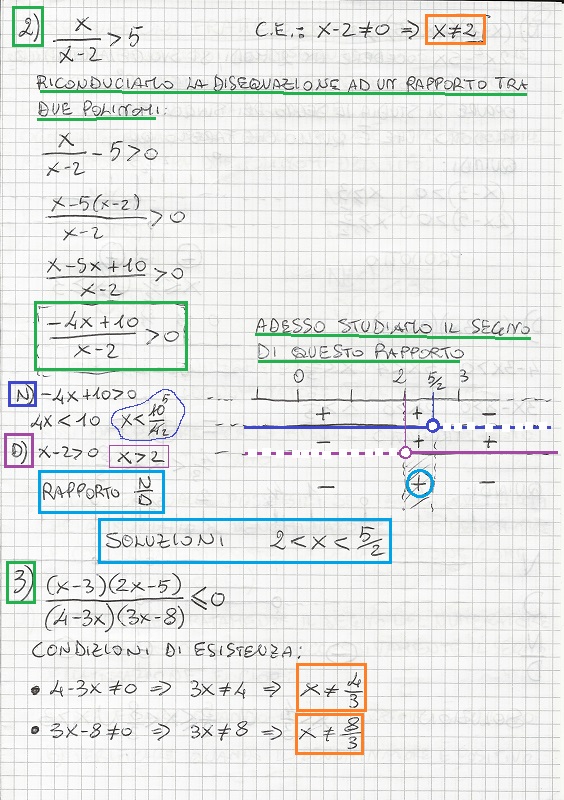 2) x/(x-2) > 5 C.E.: x-2≠0 ⇒ x≠2
RICONDUCIAMO LA DISEQUAZIONE AD UN RAPPORTO TRA
DUE POLINOMI:
x/(x-2) - 5 > 0
(x-5(x-2))/(x-2) > 0
(x-5x+10)/(x-2) > 0
(-4x+10)/(x-2) > 0
ADESSO STUDIAMO IL SEGNO
DI QUESTO RAPPORTO
N) -4x+10>0
4x<10 x<10/4 5 2
D) x-2>0 x>2
RAPPORTO N/D
0 2 5/2 3
+ + -
- + +
- + -
SOLUZIONI 2<x<5/2
3) (x-3)(2x-5)/(4-3x)(3x-8) ⩽0
CONDIZIONI DI ESISTENZA:
• 4-3x≠0 ⇒ 3x≠4 ⇒ x≠4/3
• 3x-8≠0 ⇒ 3x≠8 ⇒ x≠8/3